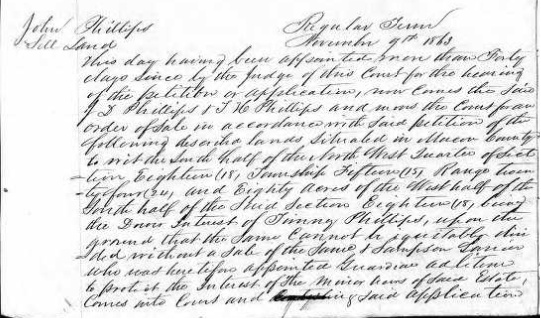 John Phillips
Sell Land
Regular Term
November 9th 1863
This day having been appointed more than Forty
days since by the Judge of this Court for the hearing
of the Petition or application, now comes the said
J D Phillips & T H Phillips and move the Court for an
order of Sale in accordance with said petition of the
following described lands situated in Macon County
to wit the South half of the North West Quarter of Sec
-tion Eighteen (18), Township Fifteen (15) Range twen
-ty four (24) and Eighty acres of the West half of the
South half of the Said Section Eighteen (18) being
the Dower Interest of Phillips, upon the
ground that the Same Cannot be equitably divi
-ded without a Sale of the Same, & Sampson Lanier
who was heretofore appointed Guardian ad litem
to protect the Interest of the Minor heirs of Said Estate,
Comes into Court and said application